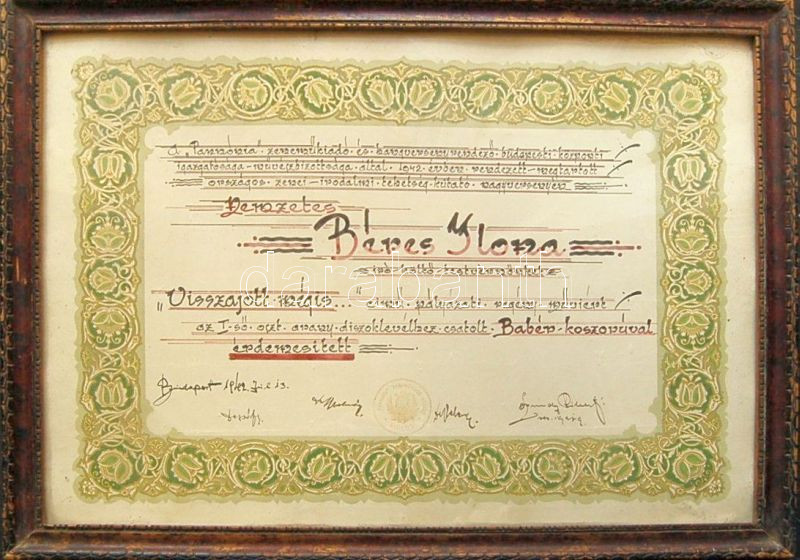 A „Pannónia” zeneműkiadó és hangversenyrendező budapesti központi
igazgatósága művészbizottsága által 1942 évben rendezett megtartott
országos zenei-irodalmi tehetség-kutató nagyversenyén
Nemzetes
Béres Ilona
író-költő testvérünket
„Visszajött mégis...” című pályázati regény művéért
az I-ső oszt. arany díszoklevélhez csatolt Babér-koszorúval
érdemesített
Budapest 1942.
darabanth